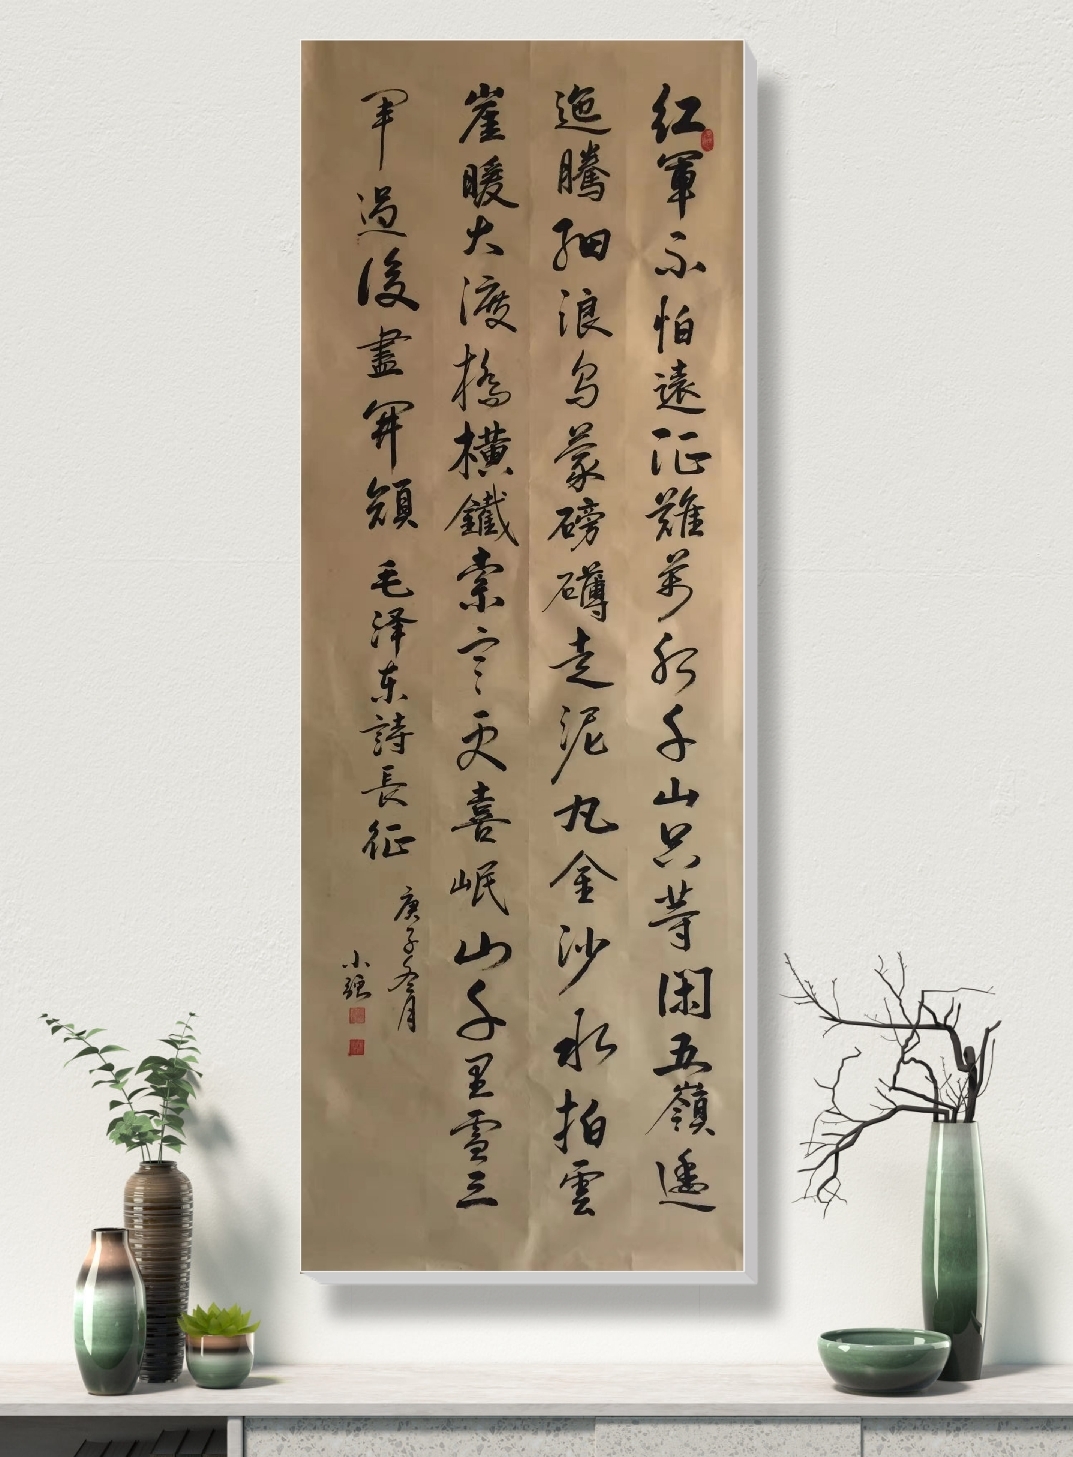 红軍不怕遠征難萬水千山只等閑五嶺逶
迤騰細浪乌蒙磅礴走泥丸金沙水拍雲
崖暖大渡橋橫鐵索寒更喜岷山千里雪三
軍過後盡開顏毛泽东詩長征
庚子冬月
小强